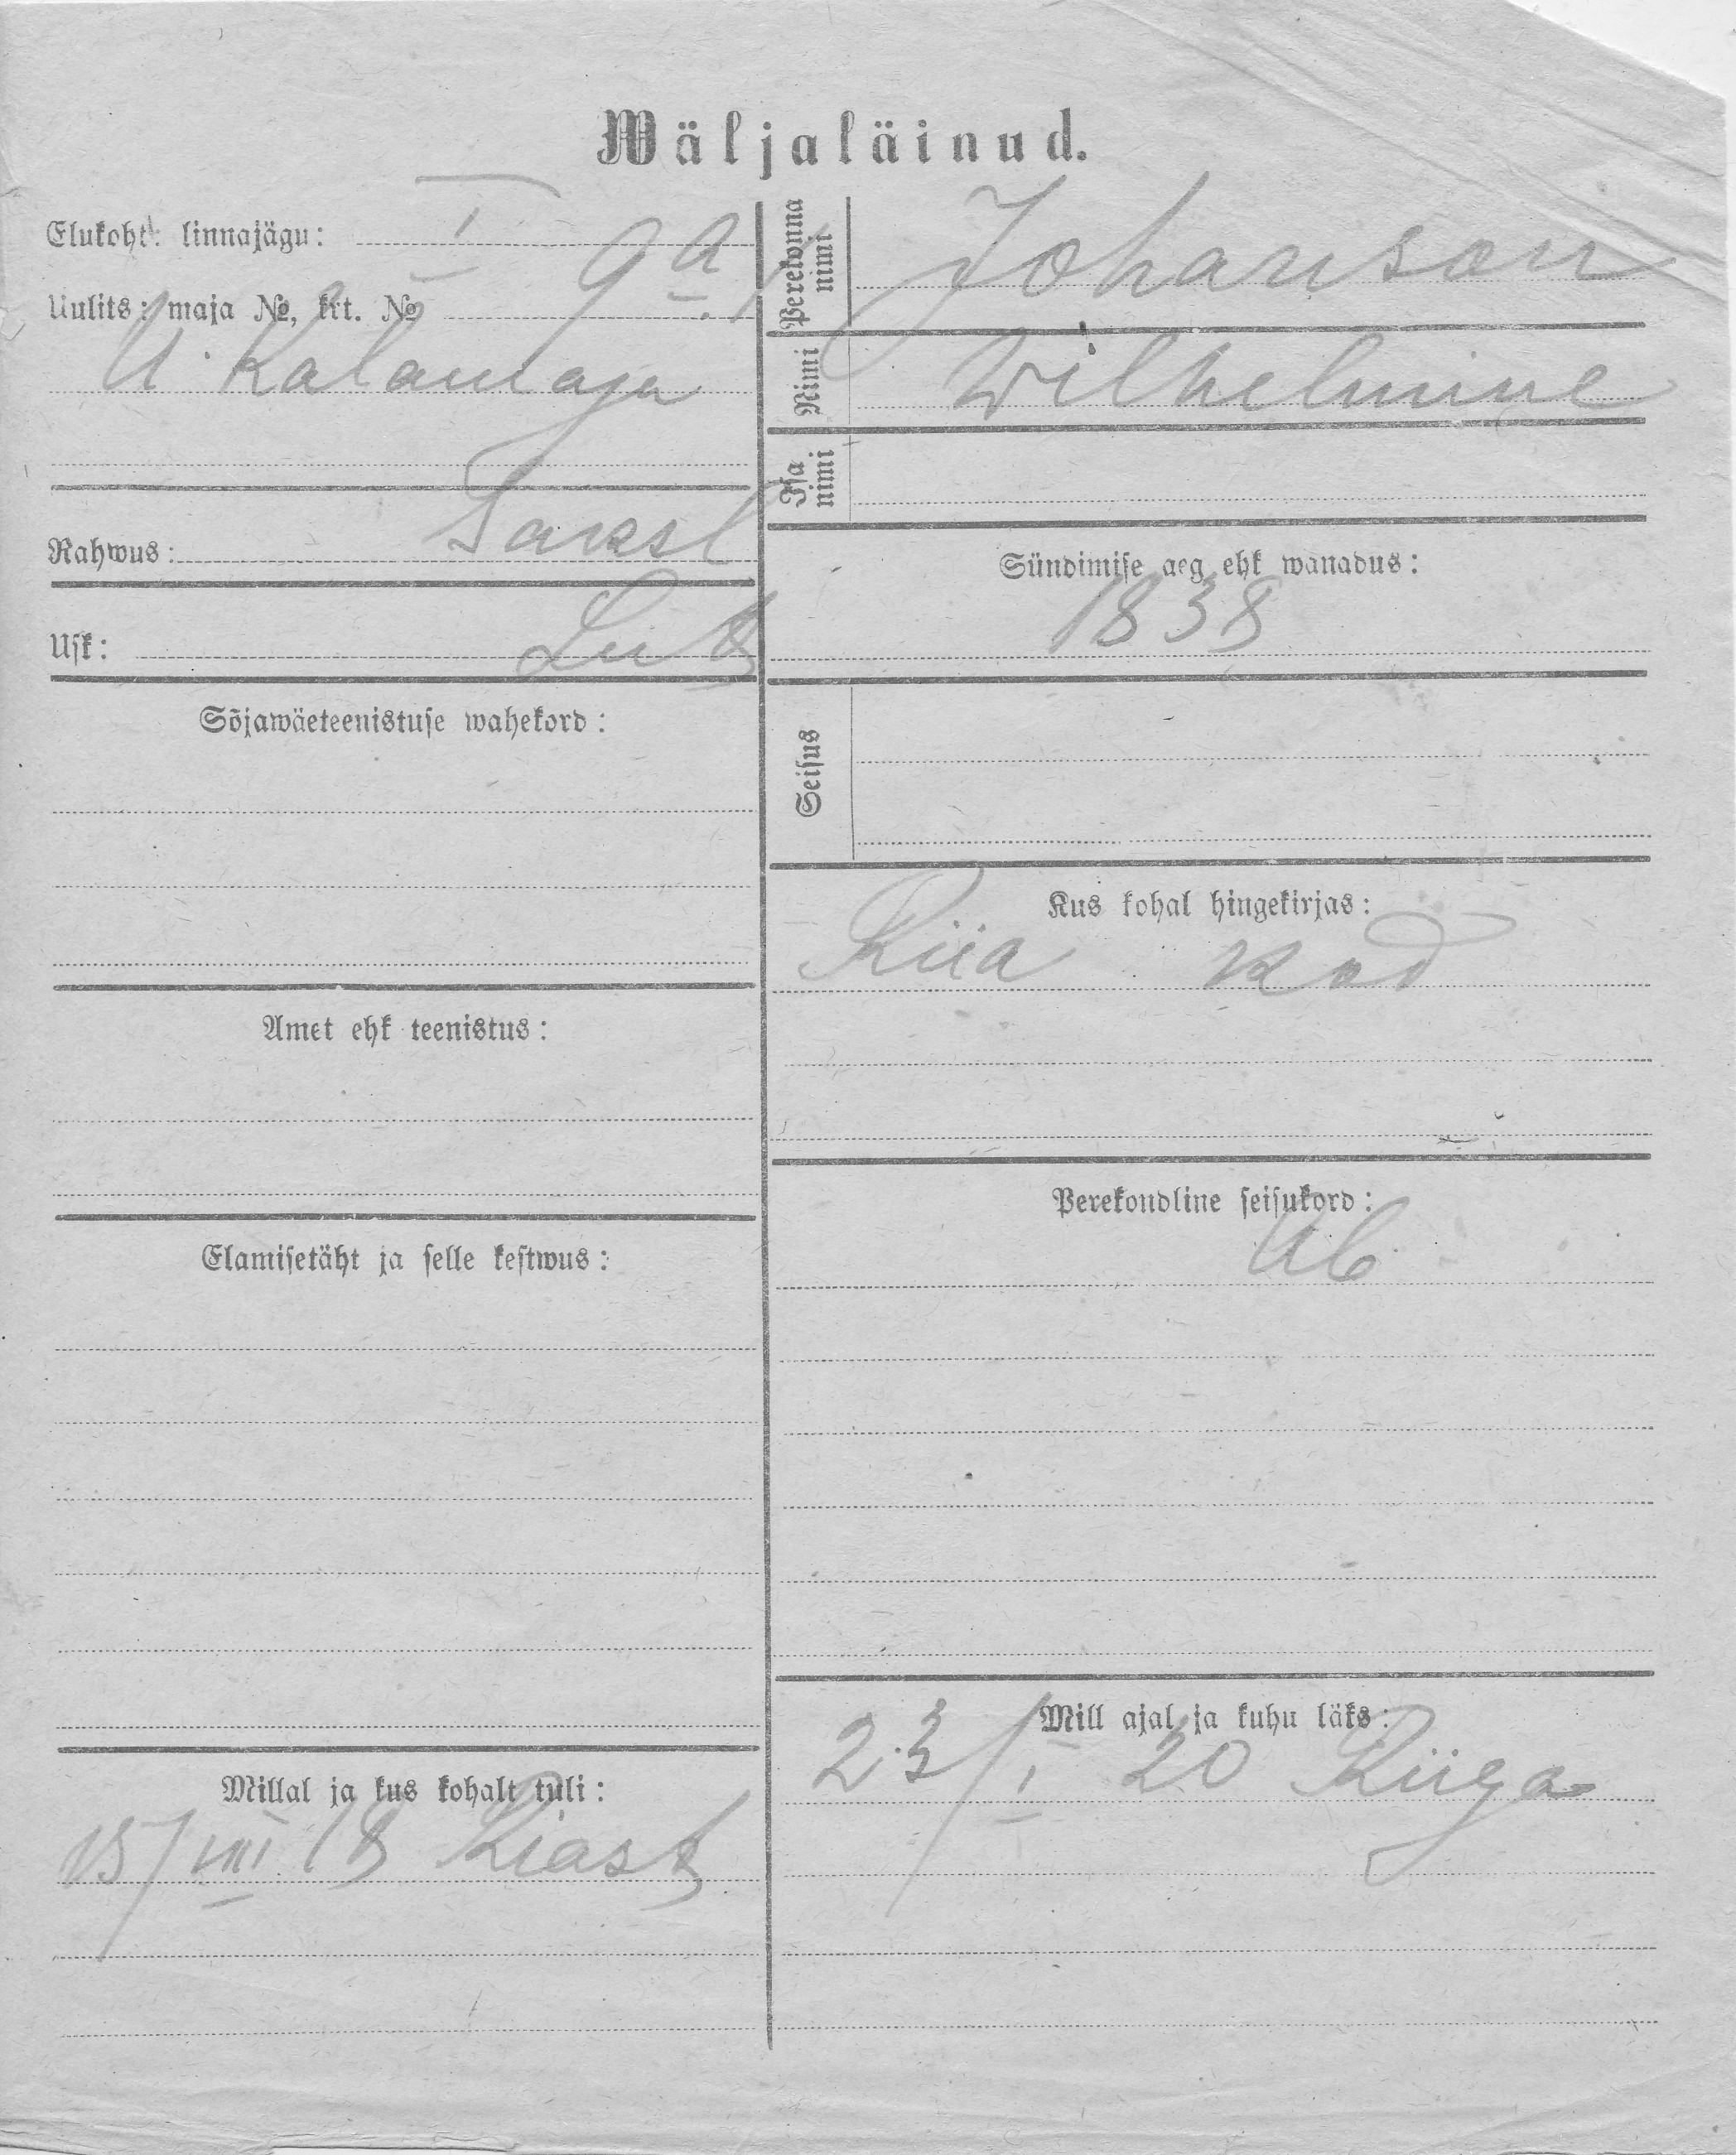 Wäljaläinud.
Elukoht: linnajagu: I
Uulits: maja №, krt. № 9a.
U. Kalamaja
Rahwus: Saksl
Usk: Lut
Sõjawäeteenistuse wahekord:
Amet ehk teenistus:
Elamisetäht ja selle kestwus:
Millal ja kus kohalt tuli:
15/VIII 18 Riast
Perekonna nimi Johanson
Nimi Wilhelmine
Isa nimi
Sündimise aeg ehk wanadus:
1838
Seisus
Kus kohal hingekirjas:
Riia kod
Perekondline seisukord:
Ab
Mill ajal ja kuhu läks:
23/I 20 Riiga